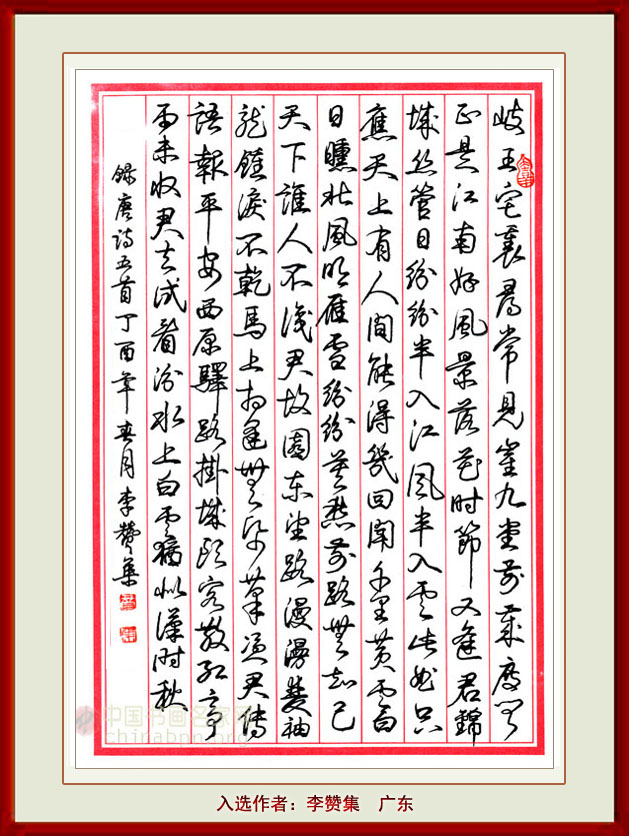 岐王宅裏尋常見崔九堂前幾度聞
正是江南好風景落花時節又逢君錦
城丝管日紛紛半入江風半入雲此曲只
應天上有人間能得幾回聞千里黄雲白
日曛北風吹雁雪紛紛莫愁前路無知己
天下誰人不識君故園东望路漫漫雙袖
龍鍾淚不乾馬上相逢無紙筆憑君傳
語報平安西原驛路掛城頭客散紅亭
雨未收君去試看汾水上白雲猶似漢時秋
錄唐詩五首丁酉年春月李贊集
中国书画名家网
chinabpn.org
入选作者：李赞集 广东